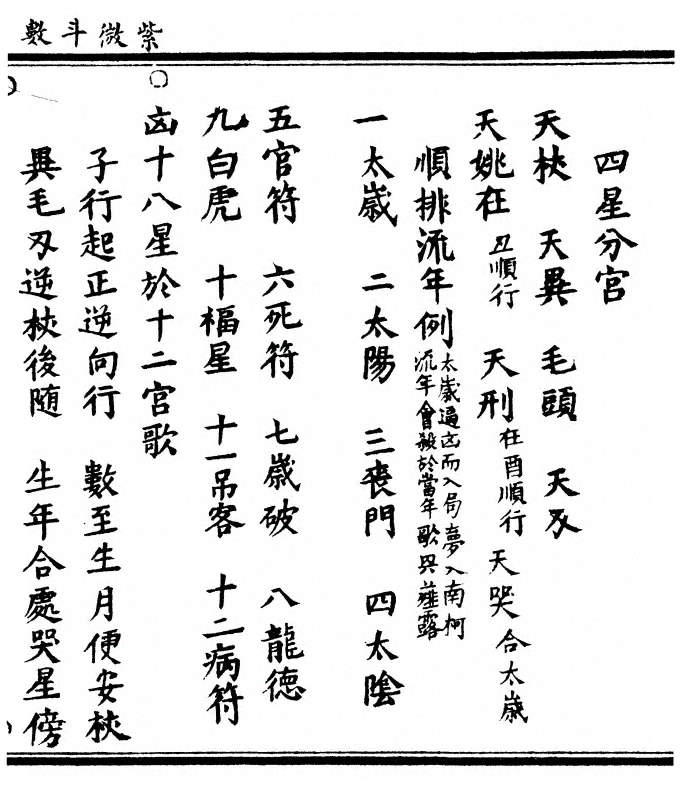 紫微斗數
四星分宮
天杖 天異 毛頭 天刃
天姚在 丑順行 天刑 在酉順行 天哭 合太歲
順排流年例 太歲逼凶而入局夢入南柯 流年會殺於當年歌與薤露
一太歲 二太陽 三喪門 四太陰
五官符 六死符 七歲破 八龍德
九白虎 十福星 十一吊客 十二病符
凶十八星於十二宮歌
子行起正逆向行 數至生月便安杖
異毛刃逆杖後随 生年合處哭星傍